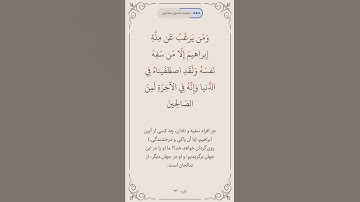 محمد صدیق منشاوی
وَمَن يَرغَبُ عَن مِلَّةِ
إِبراهيمَ إِلّا مَن سَفِهَ
نَفسَهُ وَلَقَدِ اصطَفَيناهُ فِي
الدُّنيا وَإِنَّهُ فِي الآخِرَةِ لَمِنَ
الصّالِحينَ
جز افراد سفیه و نادان، چه کسی از آیین
ابراهیم، (با آن پاکی و درخشندگی،)
روی‌گردان خواهد شد؟! ما او را در این
جهان برگزیدیم؛ و او در جهان دیگر، از
صالحان است.
بقره: ۱۳۰